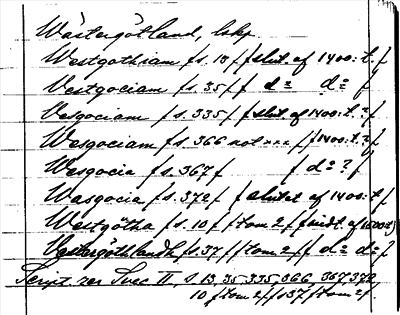 Västergötland, lskp
Westgothiam / s. 18 / / slut. af 1400: t. /
Vestgociam / s. 35 / / d:o d:o /
Vesgociam / s. 335 / / slut. af 1400: t. ? /
Wesgociam / s. 366 not *** / / 1400: t. /
Wesgocia / s. 367 / / d:o ? /
Wasgocia / s. 372 / / slutet af 1400: t. /
Westgötha / s. 10 / tom 2 / / midt. af 1500: t. /
Vestergöthlandh / s. 37 / / tom 2 / / d:o d:o /
Script. rer Svec II, s. 13, 35, 335, 366, 367, 372,
10 / tom 2 / / s 37 / tom 2 /.